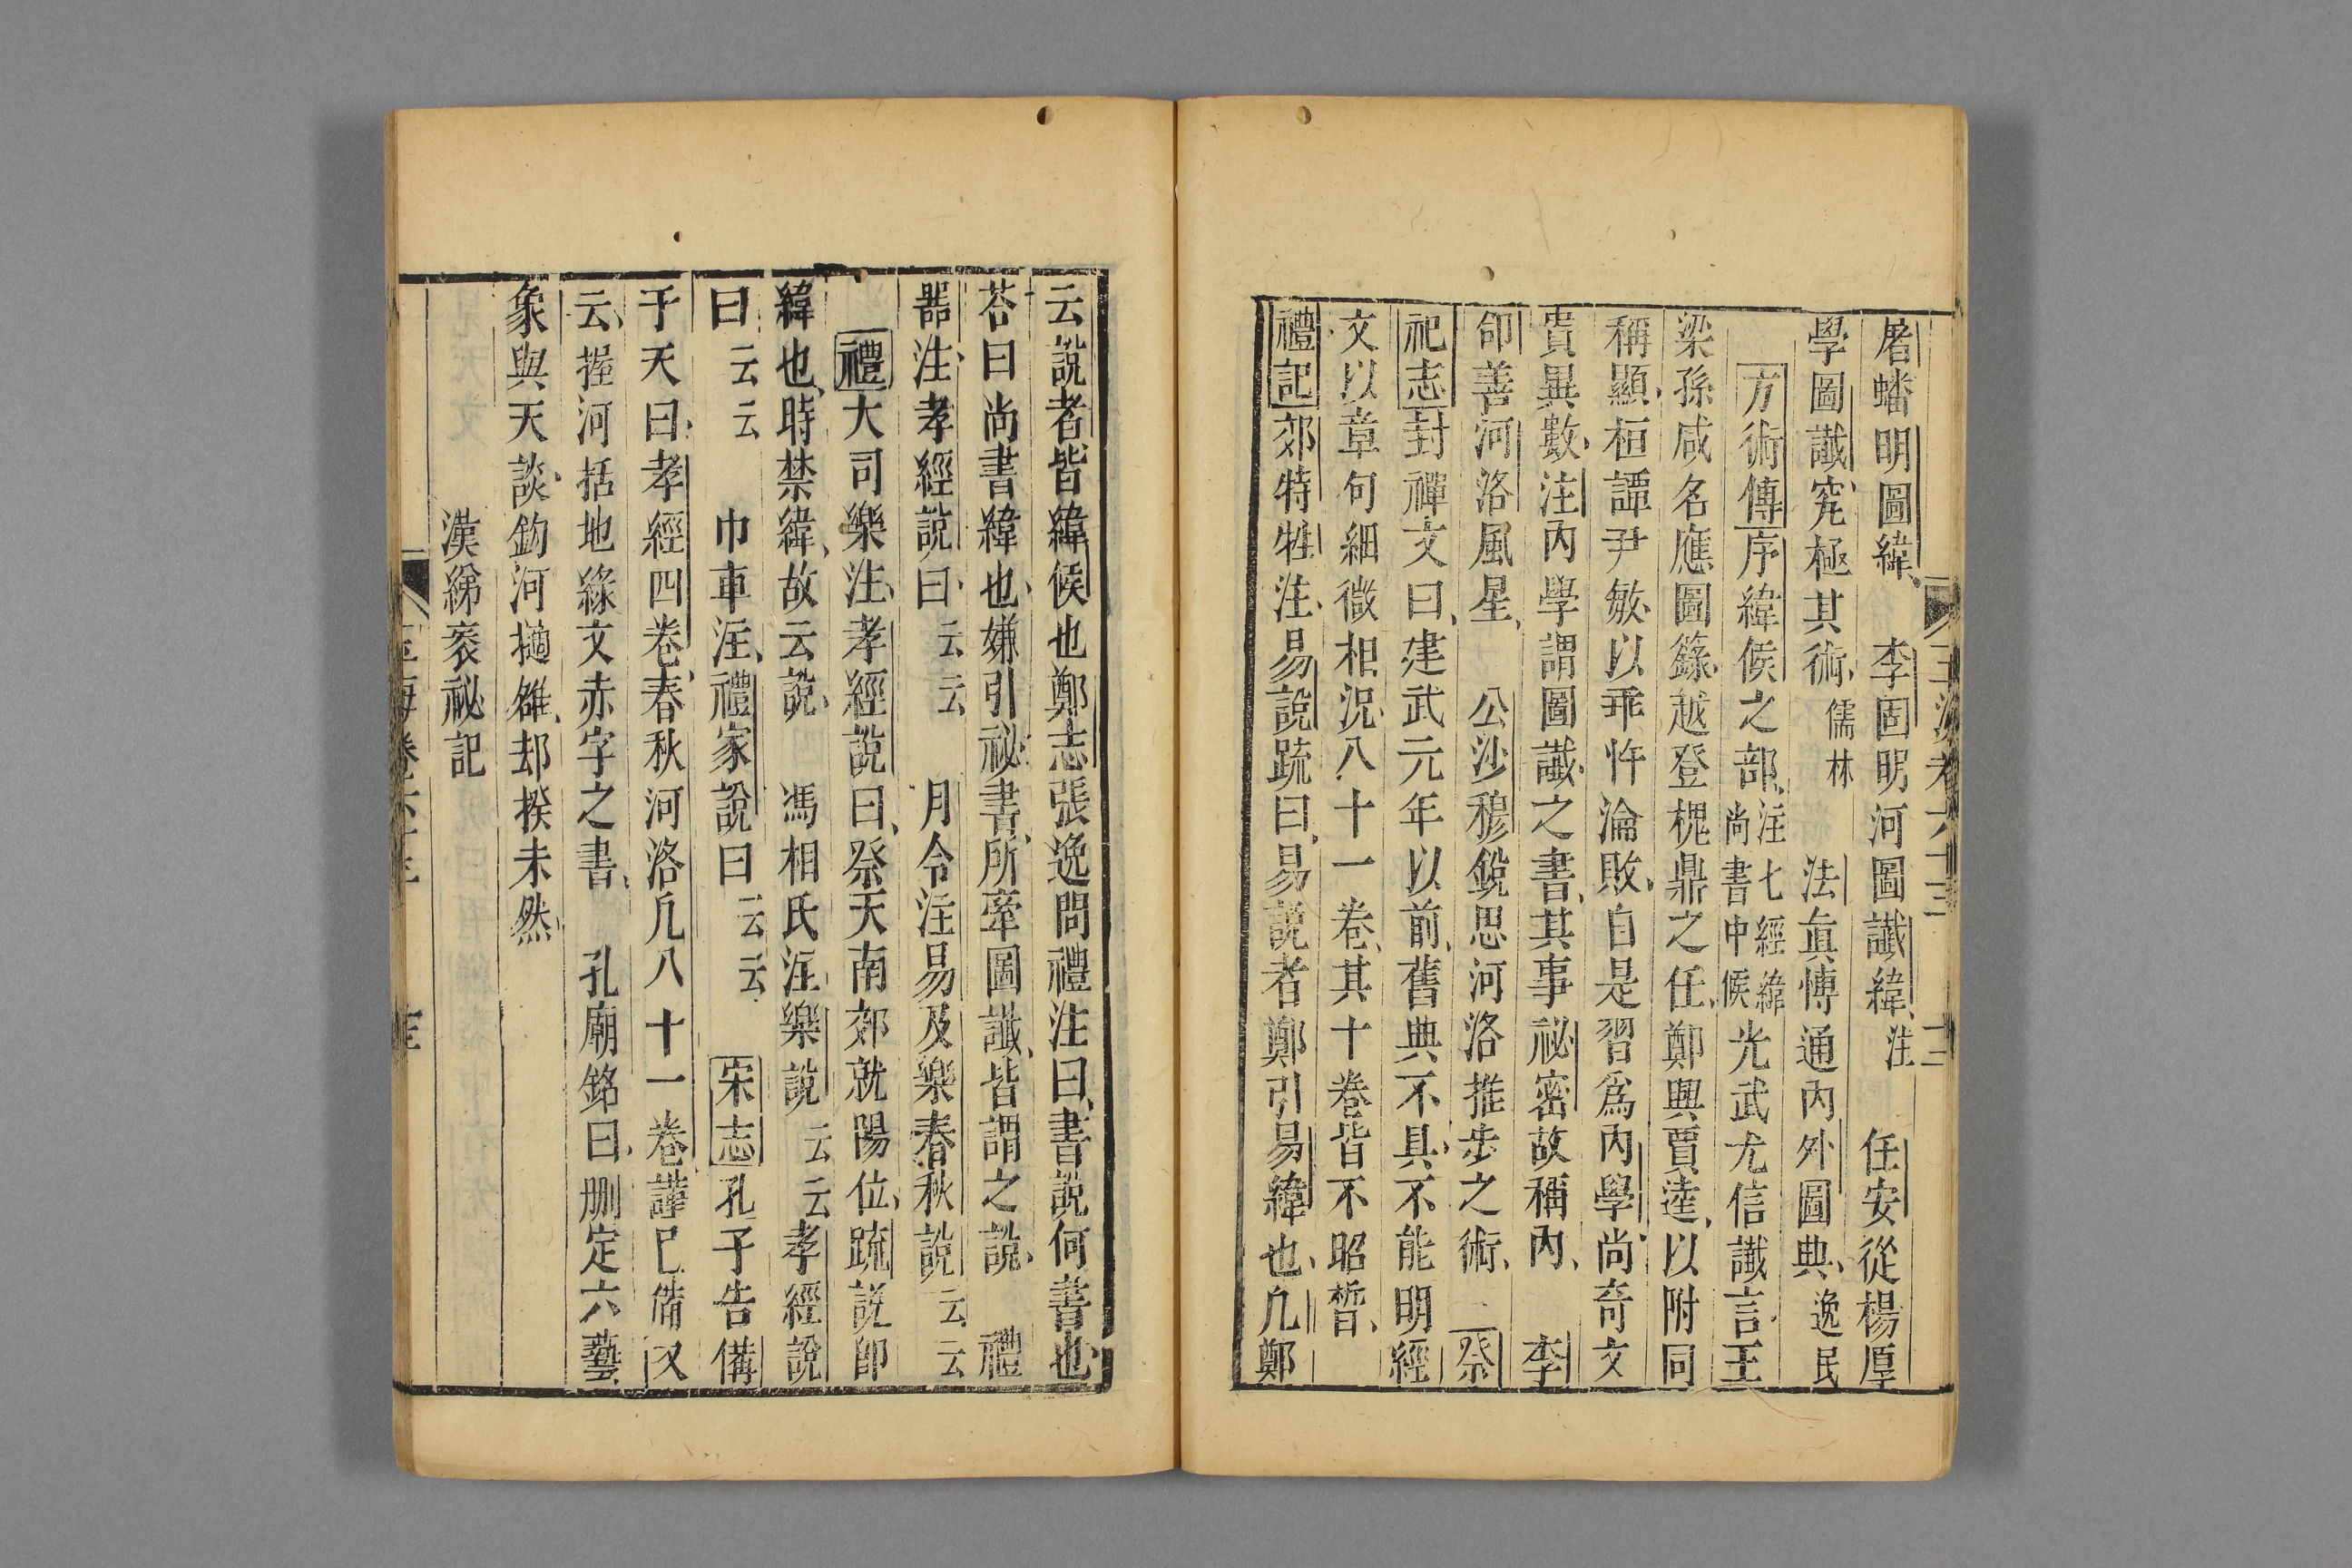 屠蟠明圖緯 李固明河圖讖緯注 任安從楊厚
學圖讖究極其術儒林 法眞博通內外圖典逸民
方術傳序緯候之部注七經緯尚書中候光武尤信讖言王
梁孫咸名應圖籙越登槐鼎之任鄭興賈逵以附同
稱顯桓譚尹敏以乖忤淪敗自是習爲內學尚奇文
貴異數注內學謂圖讖之書其事祕密故稱內 李
郃善河洛風星 公沙穆銳思河洛推步之術 祭
祀志封禪文曰建武元年以前舊典不具不能明經
文以章句細微相況八十一卷其十卷皆不昭晳
禮記郊特牲注易說䟽曰易說者鄭引易緯也凡鄭
云說者皆緯候也鄭志張逸問禮注曰書說何書也
荅曰尚書緯也嫌引祕書所牽圖讖皆謂之說 禮
器注孝經說曰云云 月令注易及樂春秋說云云
禮大司樂注孝經說曰祭天南郊就陽位䟽說卽
緯也時禁緯故云說 馮相氏注樂說云云孝經說
曰云云 巾車注禮家說曰云云 宋志孔子告備
于天曰孝經四卷春秋河洛凡八十一卷謹已備又
云握河括地綠文赤字之書 孔廟銘曰刪定六藝
象與天談鈎河摘雒却揆未然
漢綈袠祕記